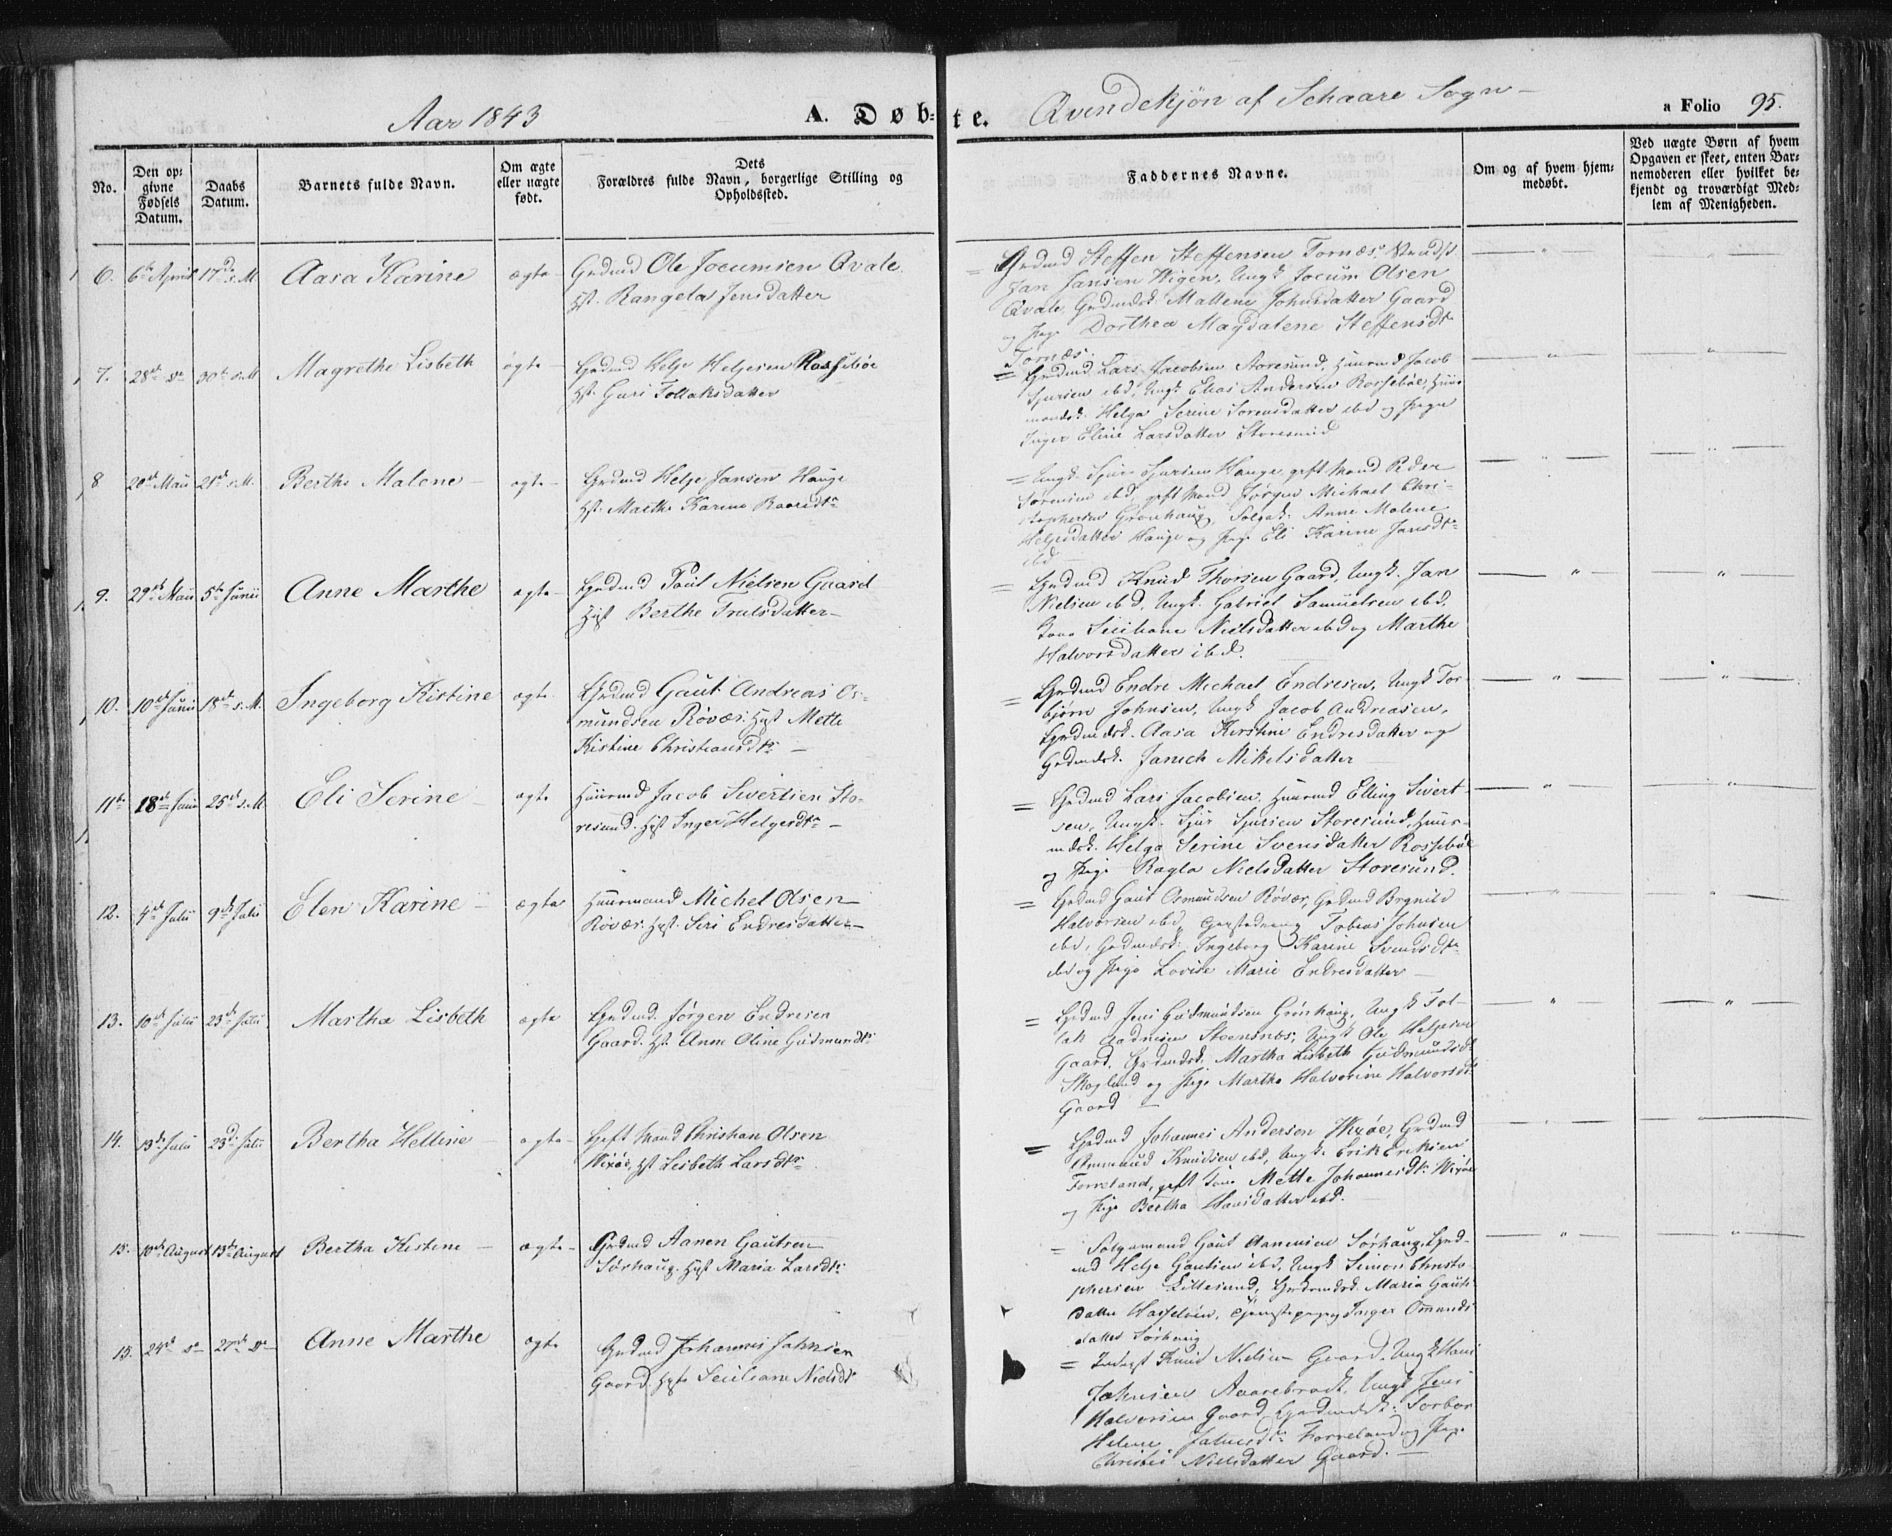 Aar 1843
A. Døb-
te.
Qvindekjøn af Schaare Sogn
a Folio 95.
No.
Den op-
givne
Fødsels
Datum.
Daabs
Datum.
Barnets fulde Navn.
Om ægte
eller uægte
født.
Dets
Forældres fulde Navn, borgerlige Stilling og
Opholdssted.
Faddernes Navne.
Om og af hvem hjem-
medøbt.
Ved uægte Børn af hvem
Opgaven er skeet, enten Bar-
nemoderen eller hvilket be-
kjendt og troværdigt Med-
lem af Menigheden.
6. 6te April 17de s.M. Aasa Karine ægte Grdmd Ole Jocumsen Qvale
Hst. Rangela Jensdatter
Grdmd Steffen Steffensen Tornæs,
Jan Jansen Wigen, Ungk. Jocum Olsen
Qvale, Grdmdsk. Mallene Johnsdatter Gaard
og Pige Dorthea Magdalene Steffensdtr
Tornæs.
7. 28de do 30te s.M. Magrethe Lisbeth ægte Grdmd Helje Heljesen Rossebøe
Hst. Guri Tollaksdatter
= Grdmd Lars Jacobsen Storesund, Huusmd Jacob
Sjursen ibd, Ungk. Elias Andersen Rossebøe, Huus-
mandsk. Helga Serine Sorensdatter ibd og Pige
Inger Eline Larsdatter Storesund
8 20de Maii 21de s.M. Berthe Malene ægte Grdmd Helje Jansen Hauge
Hst. Marthe Karine
= Ungk. Sjur Sjursen Hauge, gift Mand Peder
Sorensen ibd, gift Mand Jørgen Michael Chri-
stophersen Grønhaug, Anne Malene
Heljesdatter Hauge og Pige Eli Karine Jansdtr
ibd
9. 29de Maii 5te Junii Anne Marthe ægte Grdmd Poul Nielsen Gaard
Hust Berthe Trulsdatter
= Grdmd Knud Thorsen Gaard, Ungk. Jan
Nielsen ibd, Ungk. Gabriel Samuelsen ibd,
Kone Siciliane Nielsdatter ibd og Marthe
Halvorsdatter ibd.
10. 10de Junii 18de s.M. Ingeborg Kistine ægte Grdmd Gaut Andreas Os-
mundsen Røvær. Hust Mette
Kistine Christiansdtr.
= Grdmd Endre Michael Endresen, Ungk Tor-
bjørn Johnsen, Ungk Jacob Andreasen,
Grdmdsk. Aasa Kirstine Endresdatter og
Grdmdsk. Janich Mikelsdatter
11te 18de Junii 25de s.M. Eli Serine ægte Huusmd Jacob Sivertsen Sto-
resund. Hust Inger Helgesdtr
= Grdmd Lars Jacobsen, Huusmd Elling Sivert-
sen, Ungk. Sjur Sjursen Storesund, Huus-
mdsk. Helga Serine Svensdatter Rossebøe
og Pige Ragla Nielsdatter Storesund.
12. 4de Julii 9de Julii Elen Karine ægte Huusmand Michel Olsen
Røvær. Hust. Siri Endresdatter
= Grdmd Gaut Osmundsen Røvær, Grdmd Brynild
Halvorsen ibd, Tobias Johnsen
ibd, Grdmdsk. Ingeborg Karine Svendsdtr
ibd og Pige Lovise Marie Endresdatter
13. 10de Julii 23de Julii Martha Lisbeth ægte Grdmd. Jørgen Endresen
Gaard. Hst. Anne Oline Gudmundsdtr
= Grdmd Jens Gudmundsen Grønhaug, Ungk Tol-
lak Aadnesen Steensnæs, Ungk Ole Heljesen
Gaard, Grdmdsk. Martha Lisbeth Gudmundsdt
Skogland og Pige Marthe Halvorine Halvorsdt
Gaard
14. 13de Julii 23de Julii Bertha Helline ægte Gift Mand Christian Olsen
Wixøe, Hst Lisbeth Larsdtr
= Grdmd Johannes Andersen Wixøe, Grdmd
Ommund Knudsen ibd, Ungk. Erik Eriksen
Forreland, gift Kone Mette Johannesdtr Wixøe
og Pige Bertha Hansdatter ibd.
15. 10de August 13de August Bertha Kistene ægte Grdmd Aanen Gautsen
Sørhaug. Hust Maria Larsdtr
= Gaut Aanensen Sørhaug, Grd-
md Helje Gautsen ibd, Ungk Simon Christo-
phersen Lillesund, Grdmdsk Maria Gauts-
datter Hasseløen, Tjenestepige Inger Omunds-
datter Sørhaug
15. 24de do 27de do Anne Marthe ægte Grdmd Johannes Johnsen
Gaard. Huste Siciliane Nielsdt
= Knud Nielsen Gaard, Ungk Hans
Johnsen Aaarebrodt, Ungk Jens
Halvorsen Gaard, Grdmdsk. Torbor
Helene Forreland og Pige
Christie Nielsdatter Gaard.